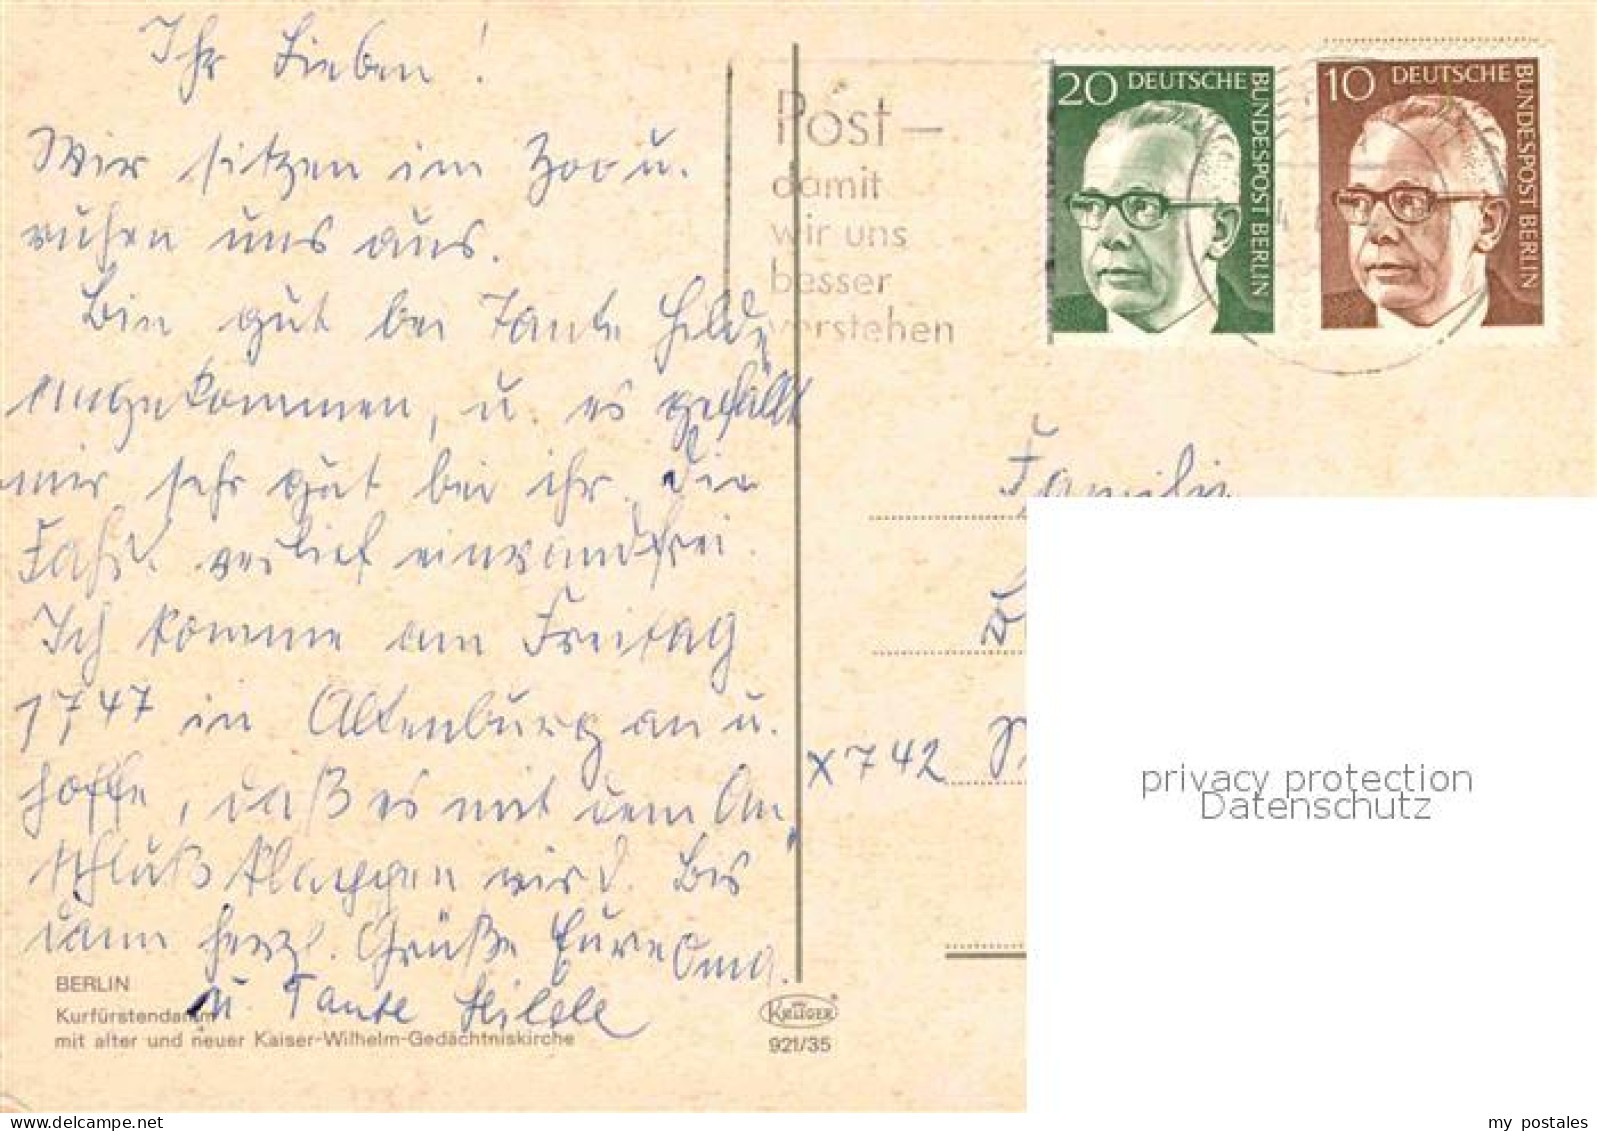 Ihr Lieben!
Wir sitzen im Zoo u.
ruhen uns aus.
Bin gut bei Tante Hilde
angekommen, u. es gefällt
mir sehr gut bei ihr. Die
Fahrt verlief einwandfrei.
Ich komme am Freitag
17,47 in Altenburg an u.
hoffe, daß es mit dem An
schluß klappen wird. Bis
dann herzl. Grüße Eure Oma.
u. Tante Hilde
BERLIN
Kurfürstendamm
mit alter und neuer Kaiser-Wilhelm-Gedächtniskirche
KRÜGER
921/35
Post –
damit
wir uns
besser
verstehen
20 DEUTSCHE BUNDESPOST BERLIN
10 DEUTSCHE BUNDESPOST BERLIN
Familie
X 742
privacy protection
Datenschutz
my postales
www.delcampe.net